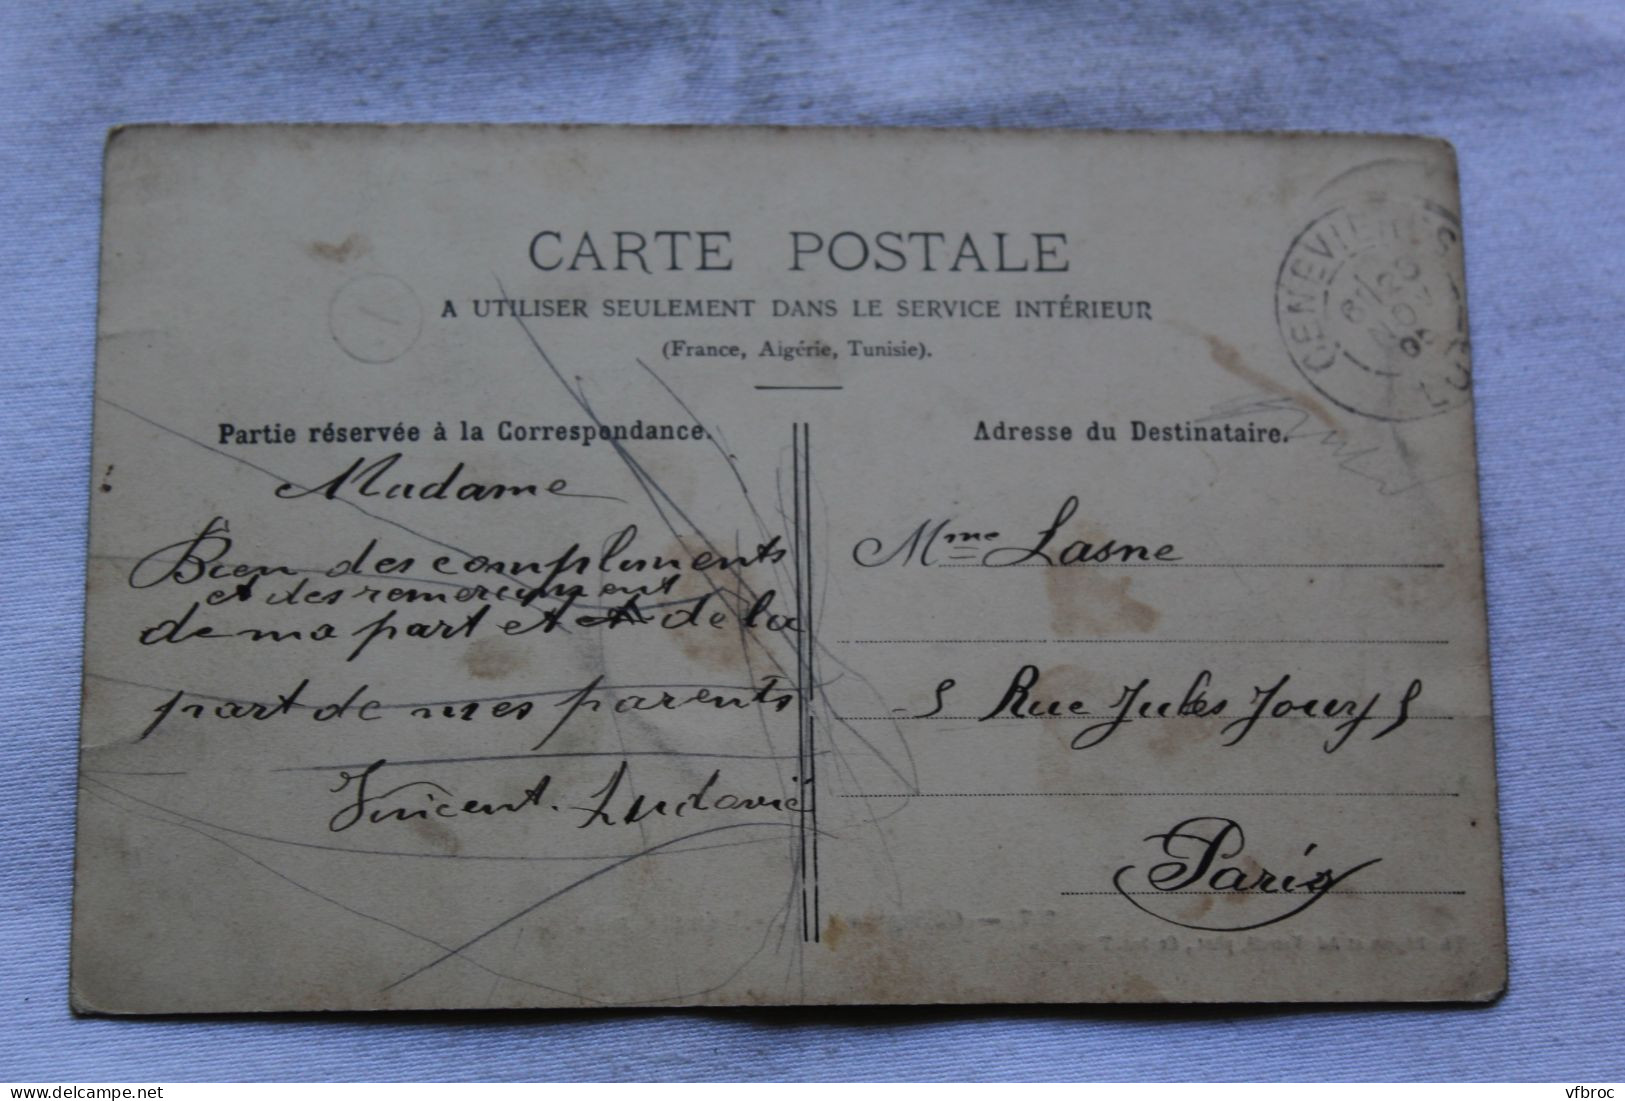 CARTE POSTALE
A UTILISER SEULEMENT DANS LE SERVICE INTÉRIEUR
(France, Algérie, Tunisie).
Partie réservée à la Correspondance.
Madame
Bien des compliments
et des remerciment
de ma part et de la
part de mes parents
Vincent. Ludovic
Adresse du Destinataire.
Mme Lasne
5 Rue Jules Jouy 5
Paris
GENEVILLIERS
20
NOV
vfbroc